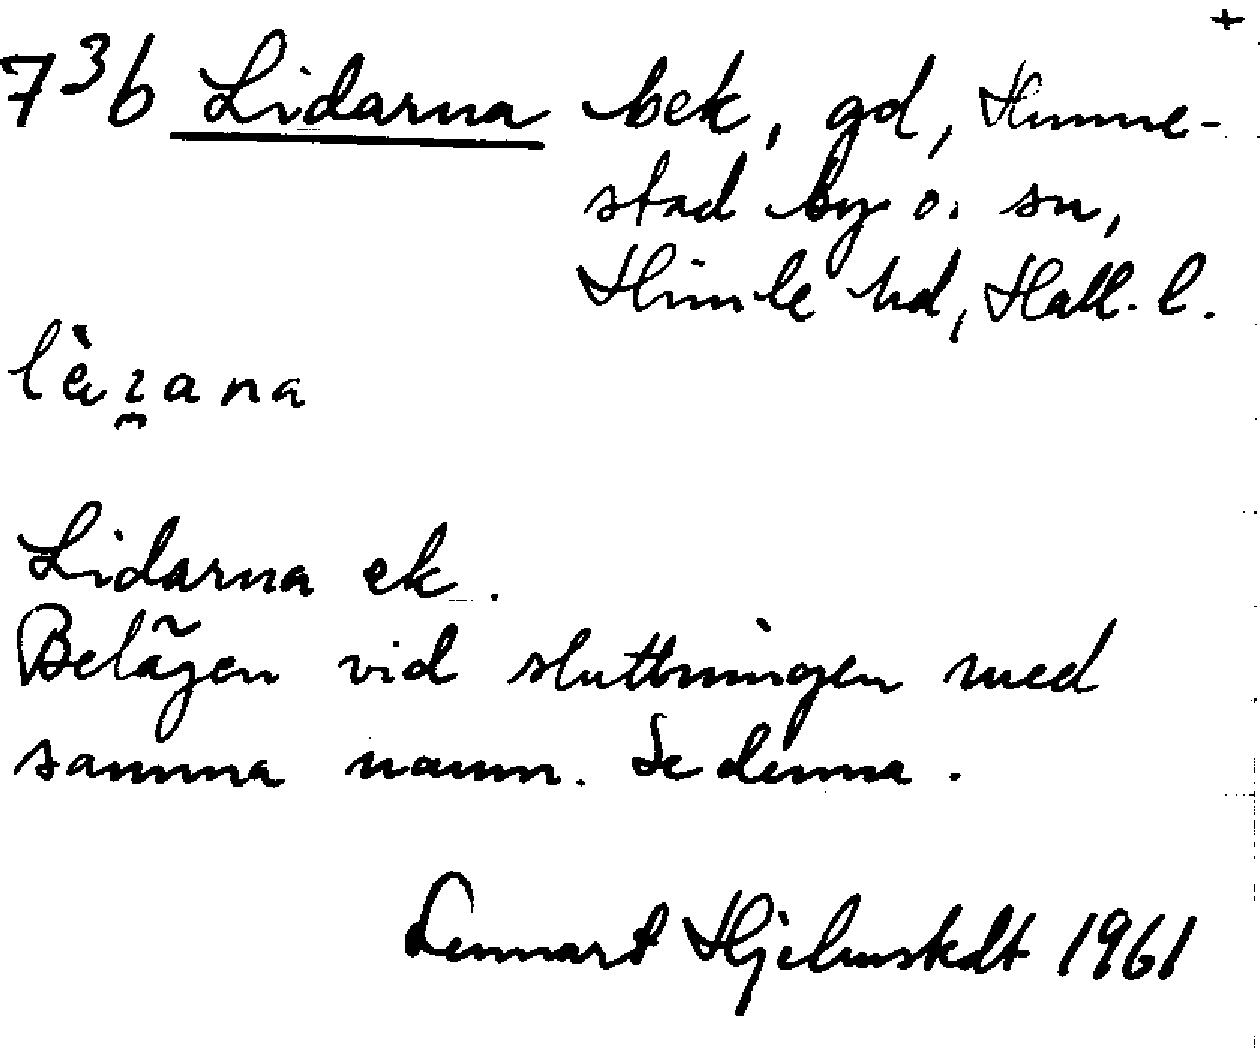 +
7³b Lidarna bek, gd, Hunne-
stad by o. sn,
Himle hd, Hall. l.
Lidarna ek.
Belägen vid sluttningen med
samma namn. Se denna.
Lennart Hjelmstedt 1961